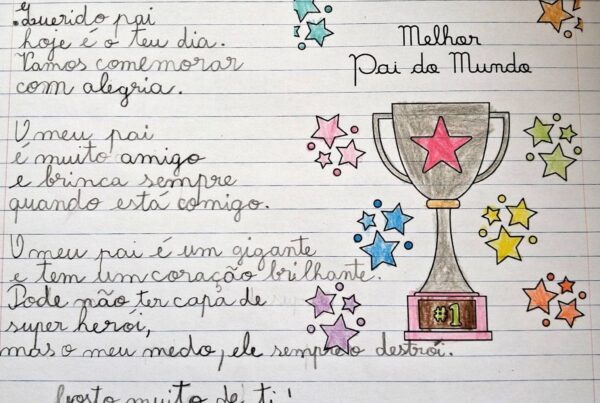 Querido pai
hoje é o teu dia.
Vamos comemorar
com alegria.
O meu pai
é muito amigo
e brinca sempre
quando está comigo.
O meu pai é um gigante
e tem um coração brilhante.
Pode não ter capa de
super herói,
mas o meu medo, ele sempre o destrói.
Gosto muito de ti!
Melhor
Pai do Mundo
#1